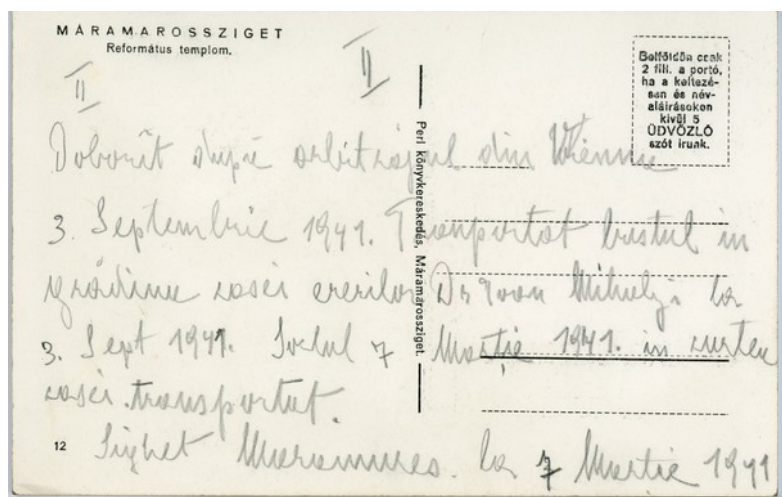 MÁRAMAROSSZIGET
Református templom.
II
II
Belföldön csak
2 fill. a portó,
ha a keltezé-
sen és név-
aláírásokon
kivül 5
ÜDVÖZLŐ
szót irunk.
Perl könyvkereskedés, Máramarossziget.
Doborît după arbitrajul din Vienna
3. Septembrie 1941. Transportat bustul in
grădina casei ererilor Dr Ioan Mihalyi la
3. Sept 1941. Soclul 7 Martie 1941. in curtea
casei transportat.
12
Sighet Maramures. la 7 Martie 1941